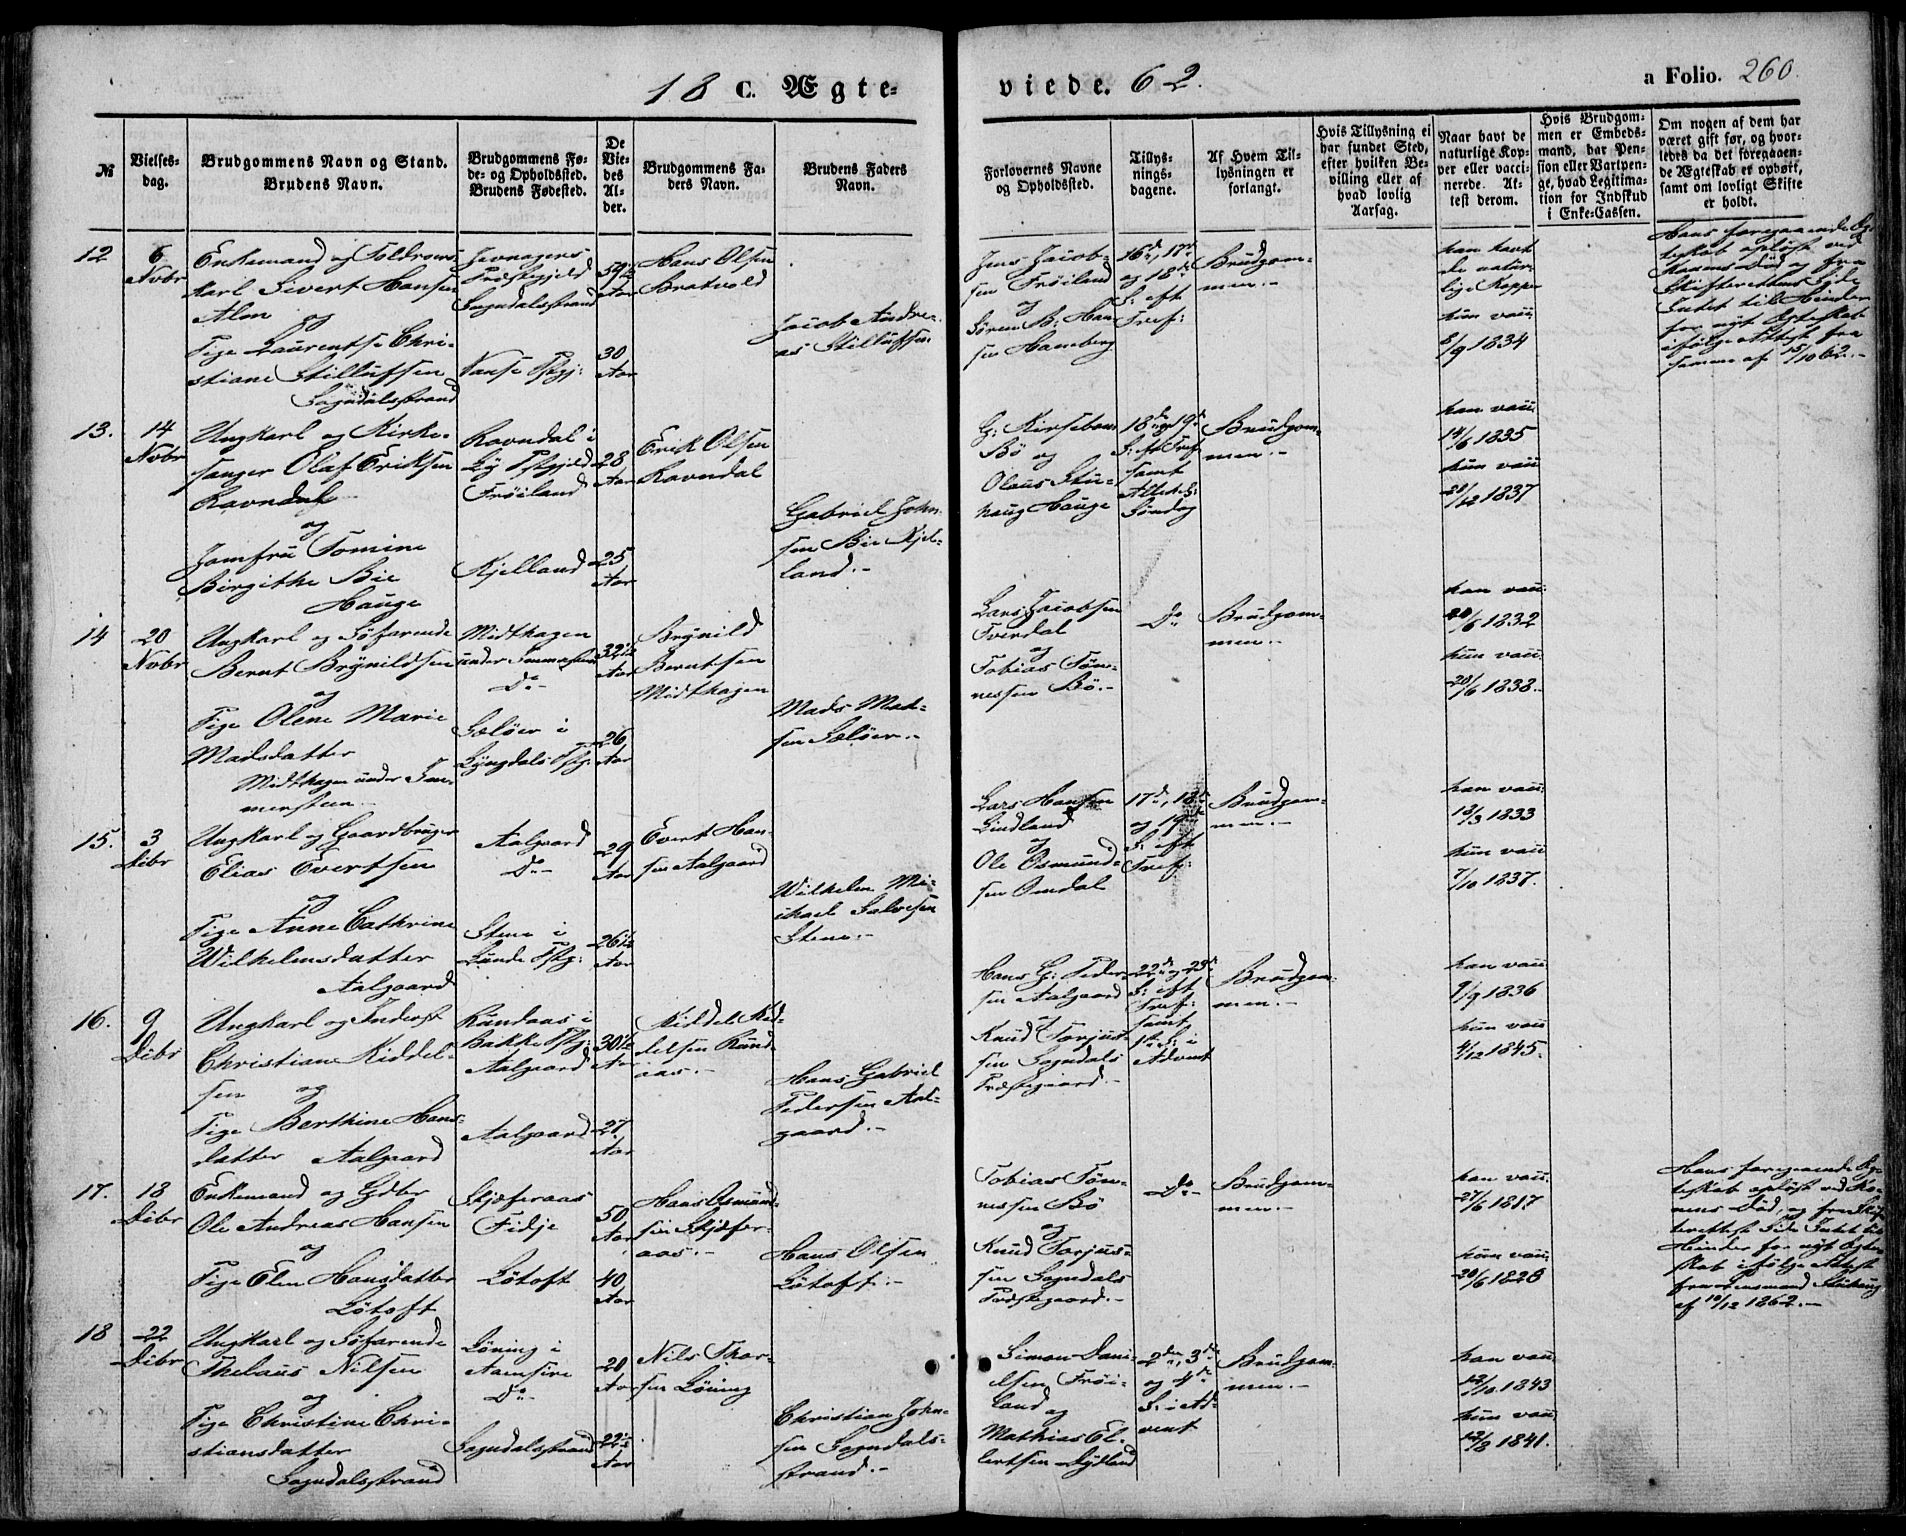 18 C. Ægte-
viede. 62.
a Folio. 260.
№
Vielses-
dag.
Brudgommens Navn og Stand.
Brudens Navn.
Brudgommens Fø-
de- og Opholdssted.
Brudens Fødested.
De
Vie-
des
Al-
der.
Brudgommens Fa-
ders Navn.
Brudens Faders
Navn.
Forlovernes Navne
og Opholdssted.
Tillys-
nings-
dagene.
Af Hvem Til-
lysningen er
forlangt.
Hvis Tillysning ei
har fundet Sted,
efter hvilken Be-
villing eller af
hvad lovlig
Aarsag.
Naar havt de
naturlige Kop-
per eller vacci-
nerede. At-
test derom.
Hvis Brudgom-
men er Embeds-
mand, har Pen-
sion eller Vartpen-
ge, hvad Legitima-
tion for Indskud
i Enke-Cassen.
Om nogen af dem har
været gift før, og hvor-
ledes da det foregaaen-
de Ægteskab er ophørt,
samt om lovligt Skifte
er holdt.
12
6
Novbr
Enkemand og
Karl Sivert Hansen
og
Pige Laurentse Chri-
stiane Stilluffsen
Sogndalsstrand
Præstegjeld
Sogndalsstrand
Vanse Pstgj:
59½
Aar
30
Aar
Hans Olsen
Bratvold
Jacob Andre-
as Stilluffsen
Jens Jacob-
sen Frøiland
og
Søren B: Han-
sen Hamberg
16de, 17de
og 18de
S: eft
Tref:
Brudgom-
men.-
han havt
de natur-
lige Kopper
hun vacc:
8/9 1834
Hans foregaaende Æg-
teskab opløst ved
Konens Død og fra
Skifterettens Side
Intet til Hinder
for nyt Ægteskab
ifølge Attest fra
samme af 15/10 62.-
13.
14
Novbr
Ungkarl og Kirke-
sanger Olaf Eriksen
Ravndal
og
Jomfru Tomine
Birgithe Bie
Hauge
Ravndal i
Lye Pstgjeld
Frøiland
Kjelland
28
Aar
25
Aar
Erik Olsen
Ravndal
Gabriel John-
sen Bie Kjel-
land.-
G: Kirsebom
Bø og
Olaus Stu-
haug Hauge
18de og 19de
S: eft Tref
samt
Alleh:
Søndag
Brudgom-
men.-
han vacc:
14/6 1835
hun vacc:
28/12 1837
14
20
Novbr
Ungkarl og Søfarende
Bernt Brynildsen
og
Pige Olene Marie
Madsdatter
Midthagen under Im-
mersteen.
Midthagen
under Immersteen
Do-
Sæløer i
Lyngdals Pstg:
32½
Aar
26
Aar
Brynild
Berntsen
Midthagen
Mads Mad-
sen Sæløer.-
Lars Jacobsen
Tverdal
og
Tobias Tøn-
nessen Bø.-
Do
Brudgom-
men.-
han vacc:
20/6 1832
hun vacc:
20/6 1838.-
15.
3
Dcbr
Ungkarl og Gaardbruger
Elias Evertsen
og
Pige Anne Cathrine
Wilhelmsdatter
Aalgaard
Aalgaard
Do-
Stene i
Lunde Pstg:
29
Aar
26½
Aar
Evert Han-
sen Aalgaard
Wilhelm Mi-
chael Salvesen
Stene.-
Lars Hansen
Lindland
og
Ole Osmund-
sen Omdal
17de, 18de
og 19de
S: eft
Tref:
Brudgom-
men.-
han vacc:
13/3 1833
hun vacc:
7/10 1837.
16.
9
Dcbr
Ungkarl og Inderst
Christian Kiddel-
sen
og
Pige Berthine Hans-
datter Aalgaard
Rundaas i
Bakke Pstg:
Aalgaard
Aalgaard
30½
Aar
27
Aar
Kiddel Kid-
delsen Rund-
aas.-
Hans Gabriel
Pedersen Aal-
gaard.-
Hans G: Peder-
sen Aalgaard
og
Knud Torjus-
sen Sogndals
Præstegaard.-
22de og 23de
S: eft
Tref:
samt
1ste S: i
Advent
Brudgom-
men.-
han vacc:
9/9 1836
hun vacc
4/12 1845.
17.
18
Dcbr
Enkemand og Gdbr
Ole Andreas Hansen
og
Pige Elen Hansdatter
Løtoft
Skjæferaas
Fidje
Løtoft
50
Aar
40
Aar
Hans Osmund-
sen Skjæfer-
aas.-
Hans Olsen
Løtoft.-
Tobias Tøn-
nessen Bø
og
Knud Torjus-
sen Sogndals
Præstegaard.-
Do-
Brudgom-
men.-
han vacc:
27/6 1817
hun vacc:
20/6 1828
Hans foregaaende Æg-
teskab opløst ved Ko-
nens Død, og fra Skif-
terettens Side Intet til
Hinder for nyt Ægte-
skab ifølge Attest
fra Lensmand Stuhaug
af 10/12 1862.-
18
22
Dcbr
Ungkarl og Søfarende
Thelaus Nilsen
og
Pige Christine Chri-
stiansdatter
Sogndalsstrand
Løning i
Aamsire
Do-
Sogndalsstrand
20
Aar
22½
Aar
Nils Thor-
sen Løning
Christian John-
sen Sogndals-
strand.-
Simon Dani-
elsen Frøi-
land og
Mathias El-
lertsen Dydland
2den, 3de
og 4de
S: i Ad-
vent
Brudgom-
men.-
han vacc:
13/10 1843
hun vacc:
12/8 1841.